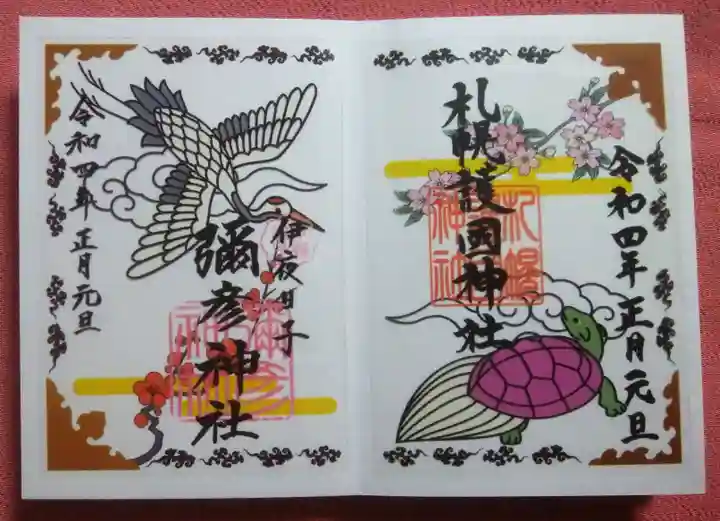 令和四年正月元旦
札幌護国神社
札幌
神社
伊夜日子
彌彦神社
彌彦
神社
令和四年正月元旦